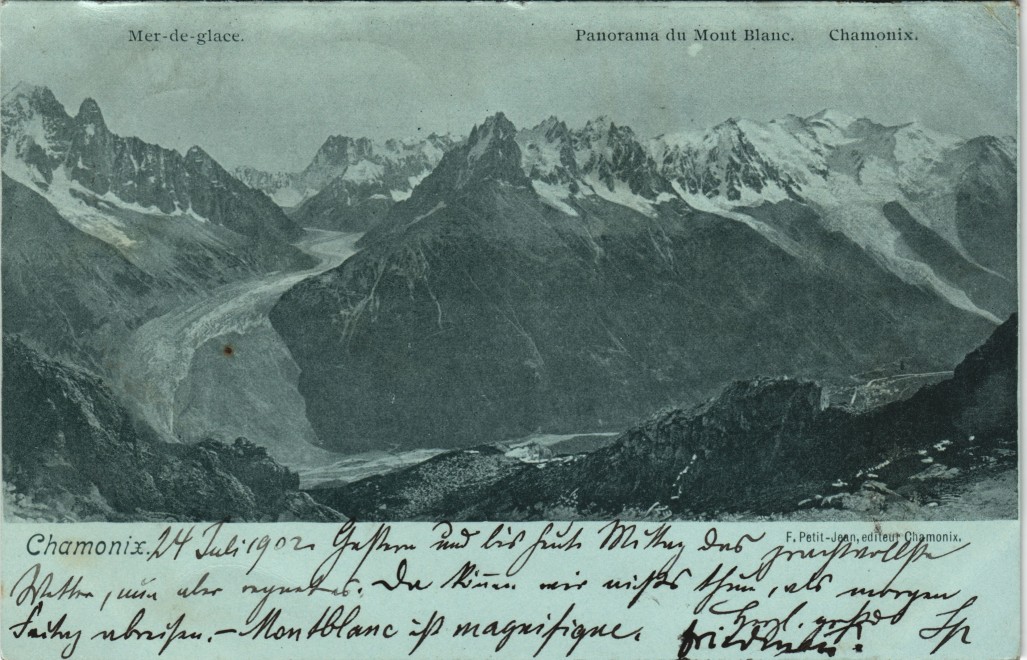 Mer-de-glace. Panorama du Mont Blanc. Chamonix.
F. Petit-Jean, editeur Chamonix.
Chamonix. 24 Juli 1902. Gestern und bis heute Mittag das prachtvollste
Wetter, nun aber regnet es. Da können wir nichts thun, als morgen
Freitag abreisen. – Montblanc ist magnifique. Herzl. grüßt